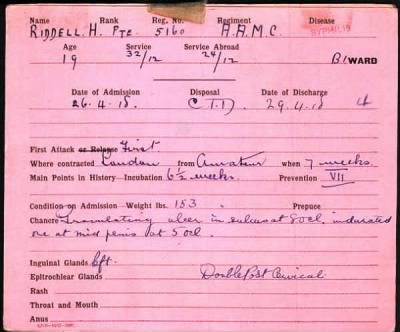 Name Rank Reg. No. Regiment Disease
RIDDELL. H. Pte 5160 A.A.M.C. SYPHILIS
Age Service Service Abroad
19 32/12 24/12 B1 WARD
Date of Admission Disposal Date of Discharge
26.4.18. C.T.1. 29.4.18
First Attack or Relapse First
Where contracted London from Amateur when 7 weeks.
Main Points in History—Incubation 6½ weeks. Prevention VII
Condition on Admission—Weight lbs. 153 Prepuce
Chancre Granulating ulcer in sulcus at 8 ocl. indurated
one at mid penis at 5 ocl.
Inguinal Glands Bft.
Epitrochlear Glands Double Post Cervical
Rash
Throat and Mouth
Anus